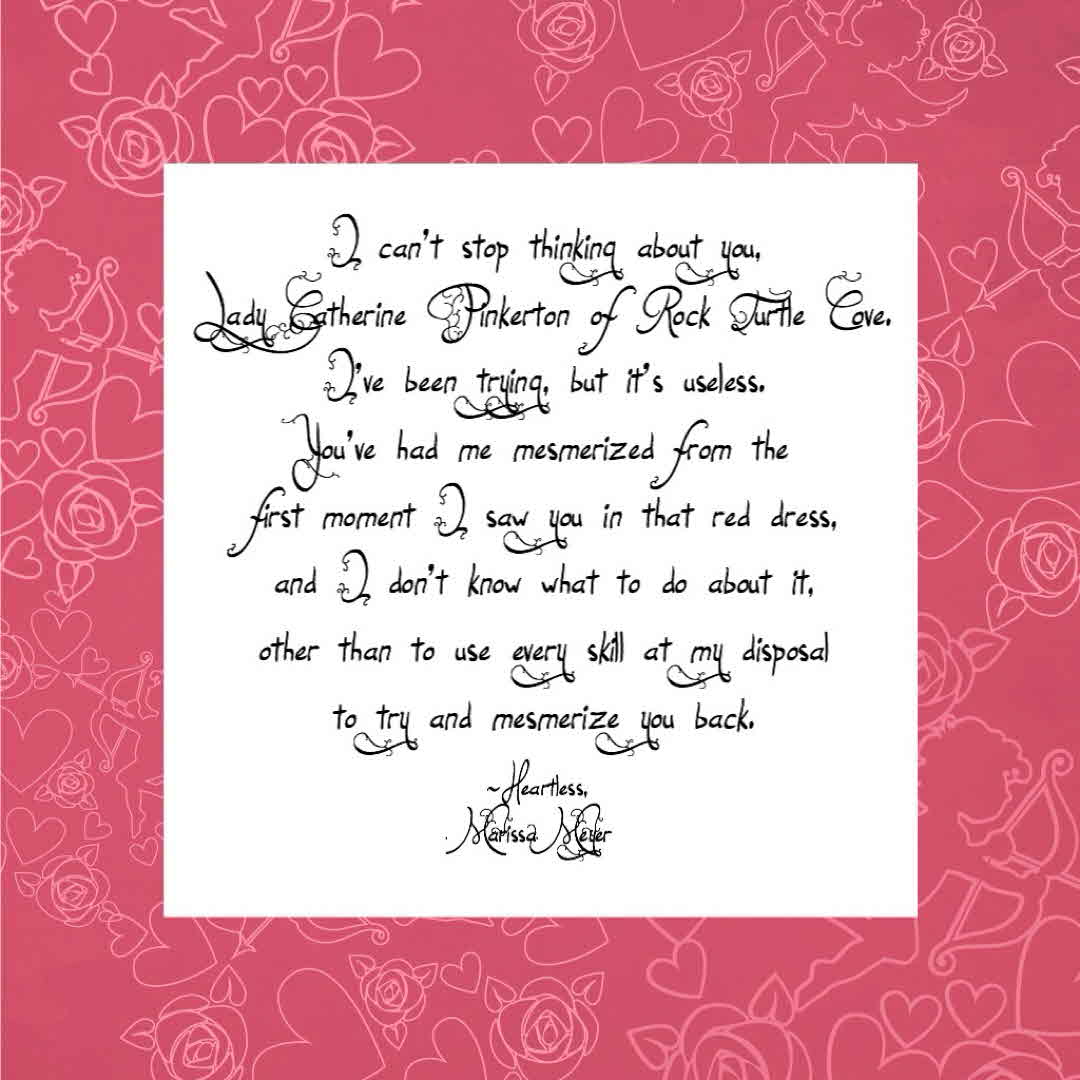 I can't stop thinking about you,
Lady Catherine Pinkerton of Rock Turtle Cove.
I've been trying, but it's useless.
You've had me mesmerized from the
first moment I saw you in that red dress,
and I don't know what to do about it,
other than to use every skill at my disposal
to try and mesmerize you back.
~Heartless,
Marissa Meyer